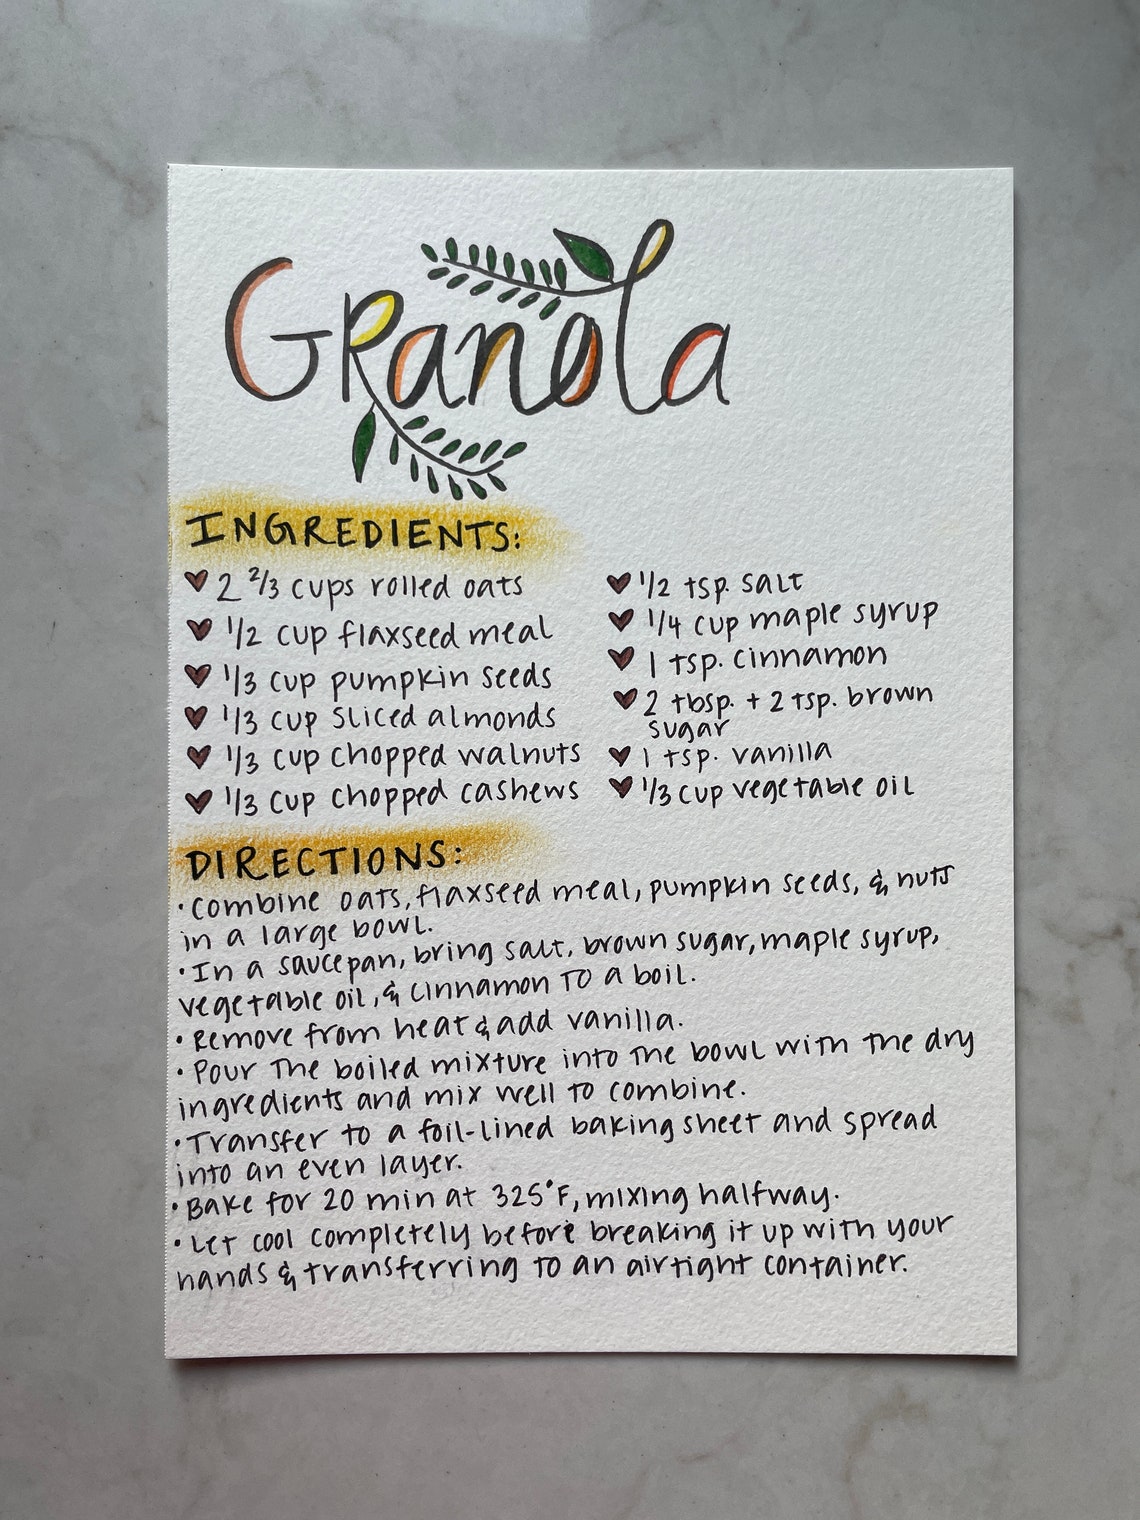 Granola
INGREDIENTS:
2 2/3 cups rolled oats
1/2 cup flaxseed meal
1/3 cup pumpkin seeds
1/3 cup sliced almonds
1/3 cup chopped walnuts
1/3 cup chopped cashews
1/2 tsp. salt
1/4 cup maple syrup
1 tsp. cinnamon
2 tbsp. + 2 tsp. brown
sugar
1 tsp. vanilla
1/3 cup vegetable oil
DIRECTIONS:
• Combine oats, flaxseed meal, pumpkin seeds, & nuts
in a large bowl.
• In a saucepan, bring salt, brown sugar, maple syrup,
vegetable oil, & cinnamon to a boil.
• Remove from heat & add vanilla.
• Pour the boiled mixture into the bowl with the dry
ingredients and mix well to combine.
• Transfer to a foil-lined baking sheet and spread
into an even layer.
• Bake for 20 min at 325°F, mixing halfway.
• Let cool completely before breaking it up with your
hands & transferring to an airtight container.